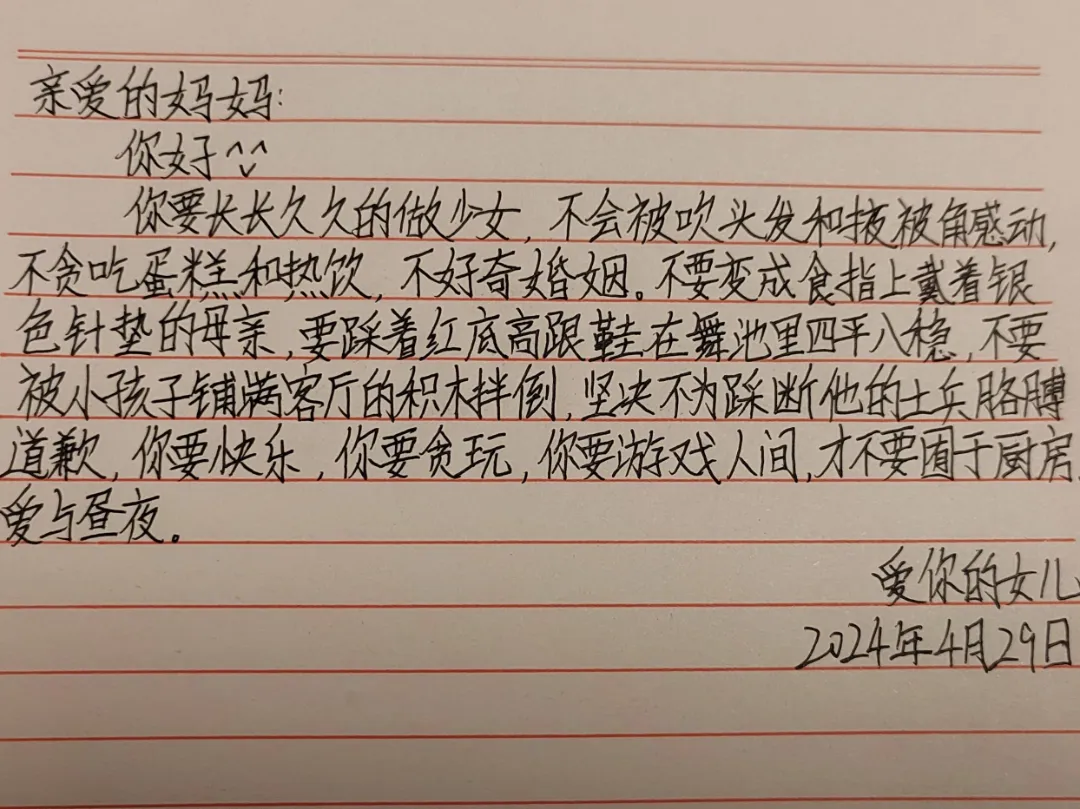 亲爱的妈妈：
你好^^
你要长长久久的做少女，不会被吹头发和掖被角感动，
不贪吃蛋糕和热饮，不好奇婚姻。不要变成食指上戴着银
色针垫的母亲，要踩着红底高跟鞋在舞池里四平八稳，不要
被小孩子铺满客厅的积木拌倒，坚决不为踩断他的士兵胳膊
道歉，你要快乐，你要贪玩，你要游戏人间，才不要囿于厨房、
爱与昼夜。
爱你的女儿
2024年4月29日